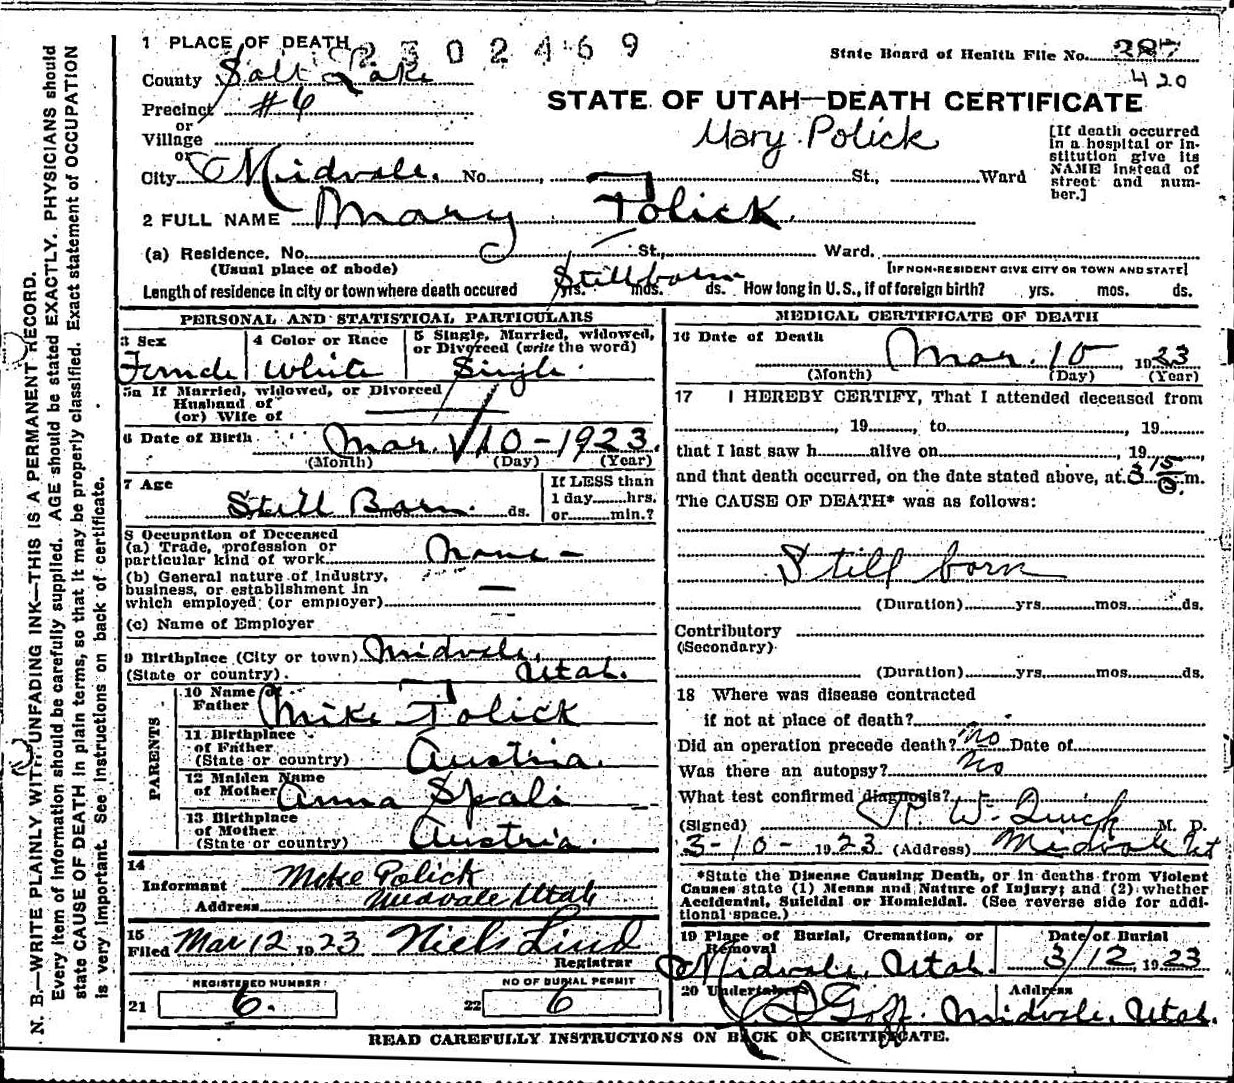 N. B.—WRITE PLAINLY, WITH UNFADING INK—THIS IS A PERMANENT RECORD.
Every item of information should be carefully supplied. AGE should be stated EXACTLY. PHYSICIANS should
state CAUSE OF DEATH in plain terms, so that it may be properly classified. Exact statement of OCCUPATION
is very important. See instructions on back of certificate.
1 PLACE OF DEATH 2302469
State Board of Health File No. 287
420
County Salt Lake
Precinct #6
or
Village
or
City Midvale. No. St., Ward
STATE OF UTAH—DEATH CERTIFICATE
Mary Polick
[If death occurred
in a hospital or in-
stitution give its
NAME instead of
street and num-
ber.]
2 FULL NAME Mary Polick.
(a) Residence. No. St., Ward.
(Usual place of abode) [IF NON-RESIDENT GIVE CITY OR TOWN AND STATE]
Stillborn
Length of residence in city or town where death occured yrs. mos. ds. How long in U. S., if of foreign birth? yrs. mos. ds.
PERSONAL AND STATISTICAL PARTICULARS
3 Sex 4 Color or Race 5 Single, Married, widowed,
or Divorced (write the word)
Female White Single.
5a If Married, widowed, or Divorced
Husband of
(or) Wife of
6 Date of Birth Mar. 10-1923.
(Month) (Day) (Year)
7 Age Still Born. ds.
If LESS than
1 day hrs.
or min.?
8 Occupation of Deceased
(a) Trade, profession or
particular kind of work None-
(b) General nature of Industry,
business, or establishment in
which employed (or employer) —
(c) Name of Employer
9 Birthplace (City or town) Midvale,
(State or country) Utah.
PARENTS
10 Name of
Father Mike Polick
11 Birthplace
of Father
(State or country) Austria.
12 Maiden Name
of Mother Anna Spali
13 Birthplace
of Mother
(State or country) Austria.
14
Informant Mike Polick
Address Midvale Utah
15
Filed Mar 12 1923 Niels Lind
Registrar
REGISTERED NUMBER NO OF BURIAL PERMIT
21 6. 22 6
MEDICAL CERTIFICATE OF DEATH
16 Date of Death Mar. 10 1923
(Month) (Day) (Year)
17 I HEREBY CERTIFY, That I attended deceased from
, 19 , to , 19
that I last saw h alive on , 19
and that death occurred, on the date stated above, at 3 15 a. m.
The CAUSE OF DEATH* was as follows:
Still born
(Duration) yrs. mos. ds.
Contributory
(Secondary)
(Duration) yrs. mos. ds.
18 Where was disease contracted
if not at place of death?
Did an operation precede death? No Date of
Was there an autopsy? No
What test confirmed diagnosis?
(Signed) W. Quick M. D.
3-10- 1923 (Address) Midvale Ut
*State the Disease Causing Death, or in deaths from Violent
Causes state (1) Means and Nature of Injury; and (2) whether
Accidental, Suicidal or Homicidal. (See reverse side for addi-
tional space.)
19 Place of Burial, Cremation, or
Removal
Midvale, Utah.
Date of Burial
3/12, 1923
20 Undertaker Goff. Address
Midvale, Utah.
READ CAREFULLY INSTRUCTIONS ON BACK OF CERTIFICATE.